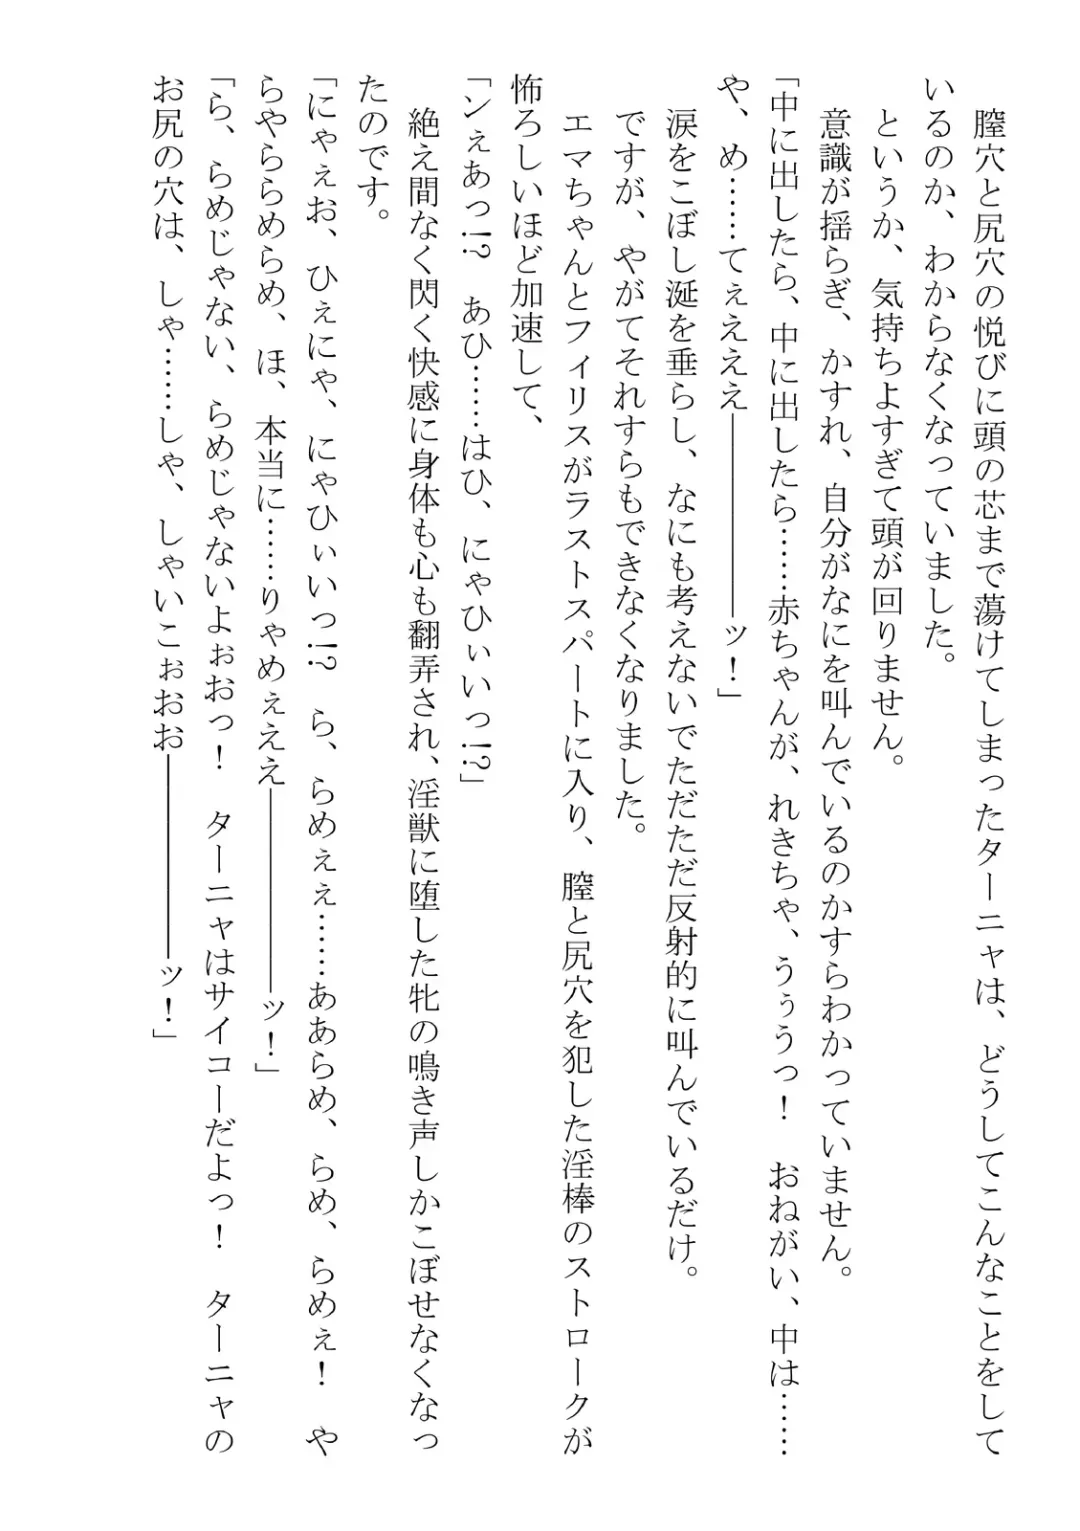 膣穴と尻穴の悦びに頭の芯まで蕩けてしまったターニャは、どうしてこんなことをして
いるのか、わからなくなっていました。
というか、気持ちよすぎて頭が回りません。
意識が揺らぎ、かすれ、自分がなにを叫んでいるのかすらわかっていません。
「中に出したら、中に出したら……赤ちゃんが、れきちゃ、うぅうっ！　おねがい、中は……
や、め……てぇえええ――――――ッ！」
涙をこぼし涎を垂らし、なにも考えないでただただ反射的に叫んでいるだけ。
ですが、やがてそれすらもできなくなりました。
エマちゃんとフィリスがラストスパートに入り、膣と尻穴を犯した淫棒のストロークが
怖ろしいほど加速して、
「ンぇあっ!?　あひ……はひ、にゃひぃいっ!?」
絶え間なく閃く快感に身体も心も翻弄され、淫獣に堕した牝の鳴き声しかこぼせなくなっ
たのです。
「にゃぇお、ひぇにゃ、にゃひぃいっ!?　ら、らめぇぇ……ああらめ、らめ、らめぇ！　や
らやららめらめ、ほ、本当に……りゃめぇええ――――――ッ！」
「ら、らめじゃない、らめじゃないよぉおっ！　ターニャはサイコーだよっ！　ターニャの
お尻の穴は、しゃ……しゃ、しゃいこぉおお――――――ッ！」